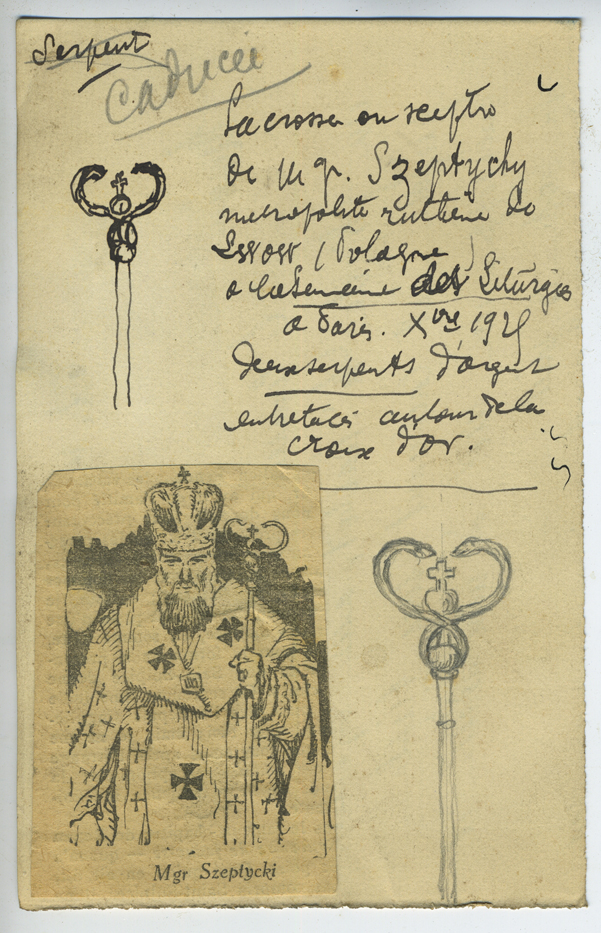 Serpent
Caducéé
La crosse ou sceptre
de Mgr. Szeptychy
métropolite ruthène de
Lwow (Pologne)
a la Semaine des Liturgies
a Paris. Xbre 1925
deux serpents d'argent
entrelacés autour de la
croix d'or.
Mgr Szeptycki